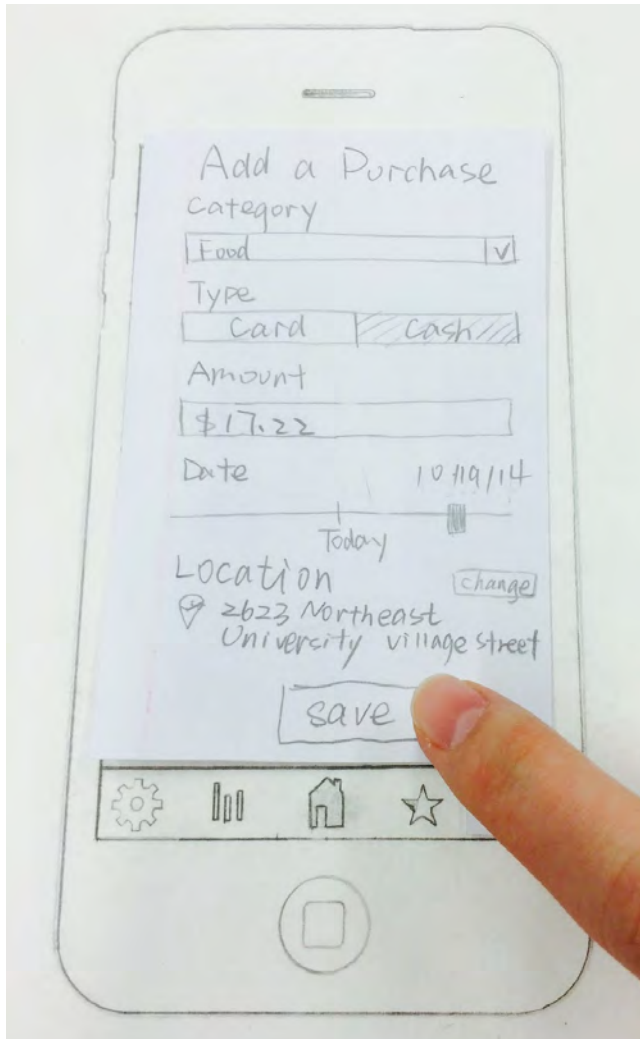 Add a Purchase
Category
Food
Type
Card Cash
Amount
$17.22
Date 10/19/14
Today
Location change
2623 Northeast
University village street
save